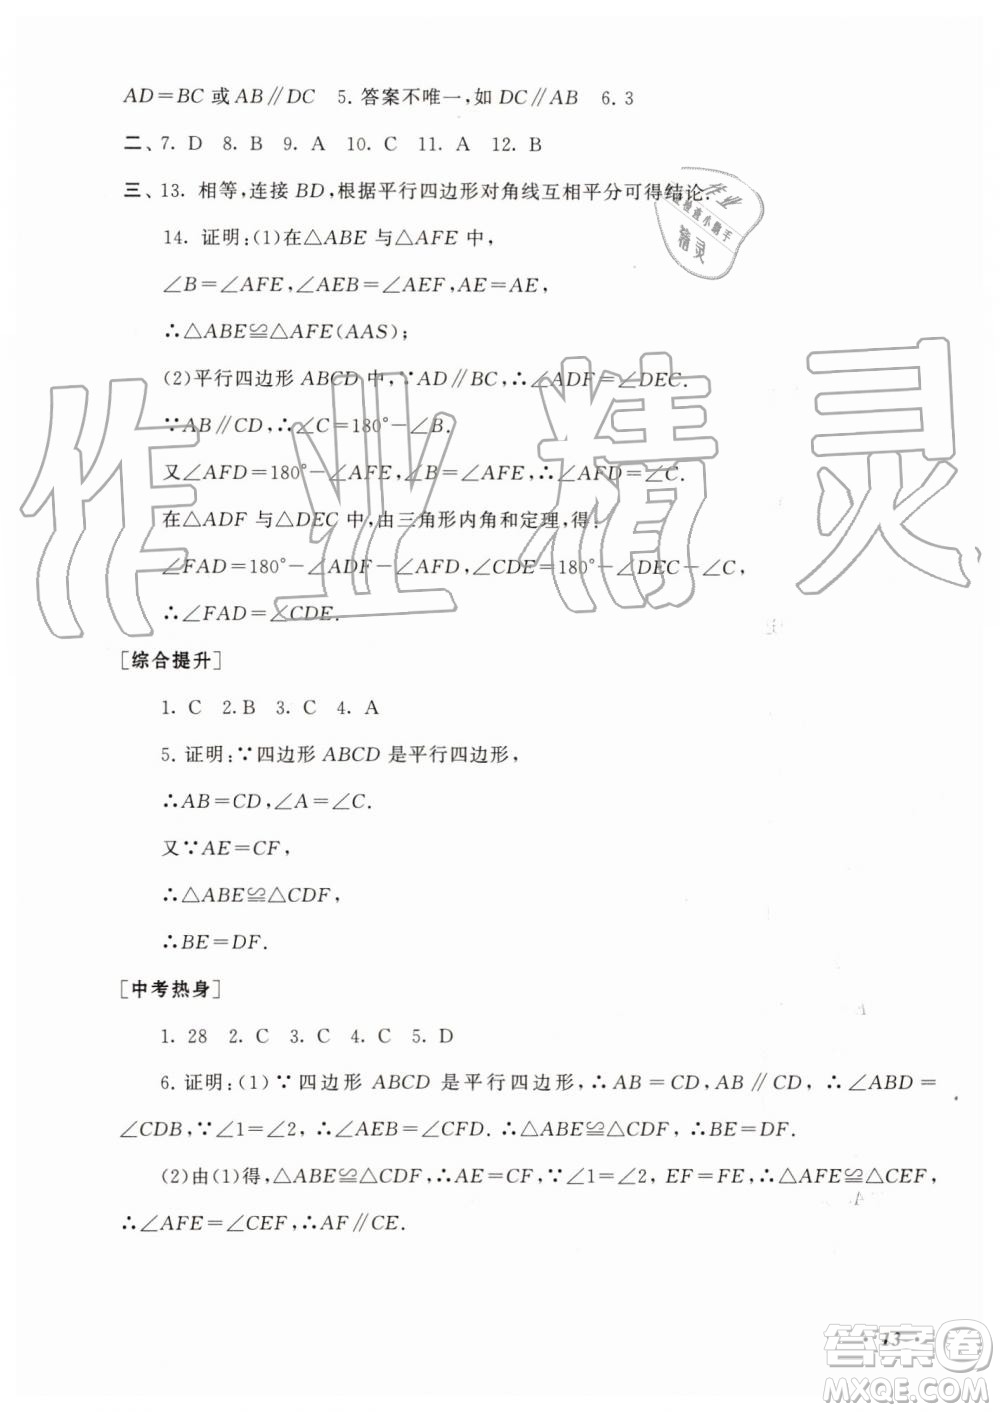 AD=BC 或 AB∥DC 5. 答案不唯一,如 DC∥AB 6. 3
二、7. D 8. B 9. A 10. C 11. A 12. B
三、13. 相等,连接 BD,根据平行四边形对角线互相平分可得结论.
14. 证明:(1)在△ABE 与△AFE 中,
∠B=∠AFE,∠AEB=∠AEF,AE=AE,
∴△ABE≌△AFE(AAS);
(2)平行四边形 ABCD 中,∵AD∥BC,∴∠ADF=∠DEC.
∵AB∥CD,∴∠C=180°-∠B.
又∠AFD=180°-∠AFE,∠B=∠AFE,∴∠AFD=∠C.
在△ADF 与△DEC 中,由三角形内角和定理,得:
∠FAD=180°-∠ADF-∠AFD,∠CDE=180°-∠DEC-∠C,
∴∠FAD=∠CDE.
[综合提升]
1. C 2. B 3. C 4. A
5. 证明:∵四边形 ABCD 是平行四边形,
∴AB=CD,∠A=∠C.
又∵AE=CF,
∴△ABE≌△CDF,
∴BE=DF.
[中考热身]
1. 28 2. C 3. C 4. C 5. D
6. 证明:(1)∵四边形 ABCD 是平行四边形,∴AB=CD,AB∥CD,∴∠ABD=
∠CDB,∵∠1=∠2,∴∠AEB=∠CFD.∴△ABE≌△CDF,∴BE=DF.
(2)由(1)得,△ABE≌△CDF,∴AE=CF,∵∠1=∠2,EF=FE,∴△AFE≌△CEF,
∴∠AFE=∠CEF,∴AF∥CE.
· 13 ·
作业精灵
作业
检查小助手
精灵
答案圈
MXQE.COM